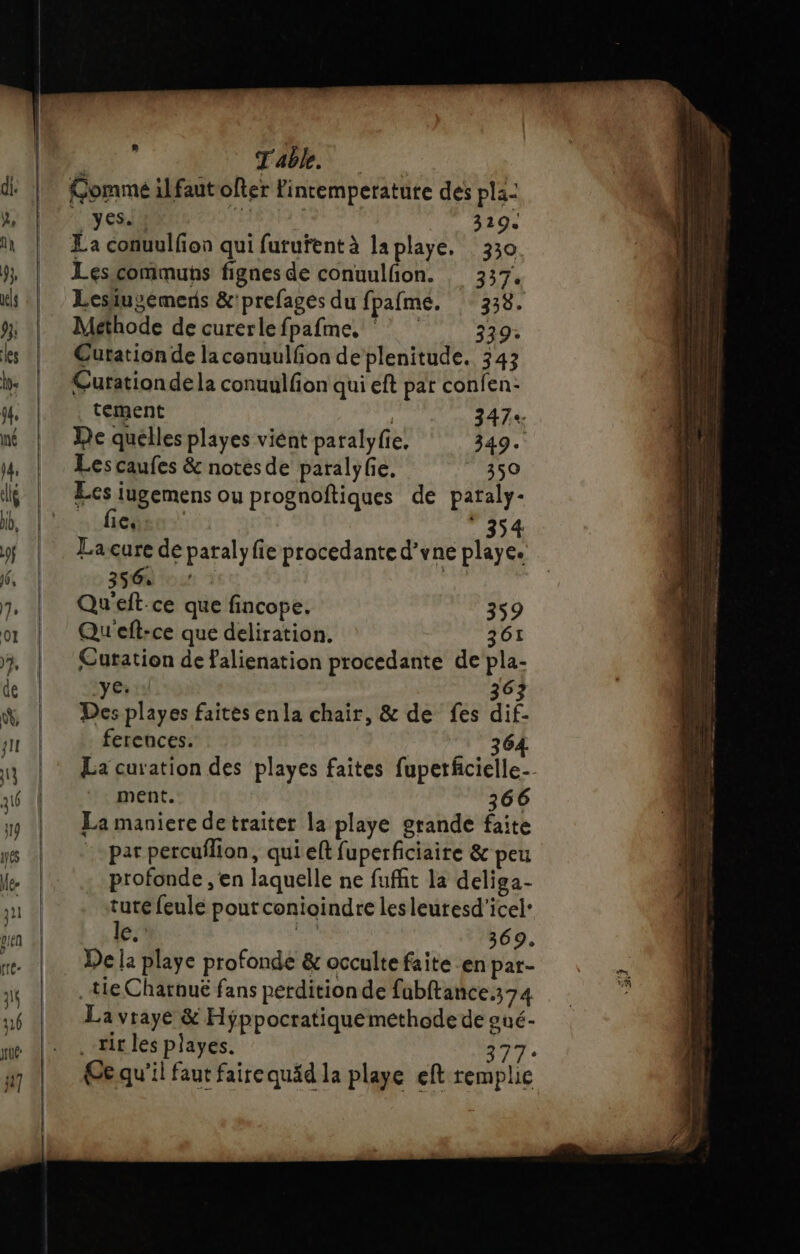 Table.
Comme il faut oſter l'intemperature des pla-
yes. 329.
La conuulſion qui ſuruient à la playe. 330
Les communs ſignes de conuulſion. 337.
Les iugemens & preſages du ſpaſme. 338.
Methode de curer le ſpaſme. 339.
Curation de la conuulſion de plenitude. 343
Curation de la conuulſion qui eſt par conſen-
tement 347.
De quelles playes vient paralyſie. 349.
Les cauſes & notes de paralyſie. 350
Les iugemens ou prognoſtiques de paraly-
ſie. 354
La cure de paralyſie procedante d'vne playe.
356.
Qu'eſt-ce que ſincope. 359
Qu'eſt-ce que deliration. 361
Curation de l'alienation procedante de pla-
ye. 363
Des playes faites en la chair, & de ſes dif-
ferences. 364
La curation des playes faites ſuperficielle-
ment. 366
La maniere de traiter la playe grande faite
par percuſſion, qui eſt ſuperficiaire & peu
profonde, en laquelle ne ſuffit la deliga-
ture ſeule pour conioindre les leures d'icel-
le. 369.
De la playe profonde & occulte faite en par-
tie Charnuë ſans perdition de ſubſtance. 374
La vraye & Hyppocratique methode de gué-
rir les playes. 377.
Ce qu'il faut faire quãd la playe eſt remplie